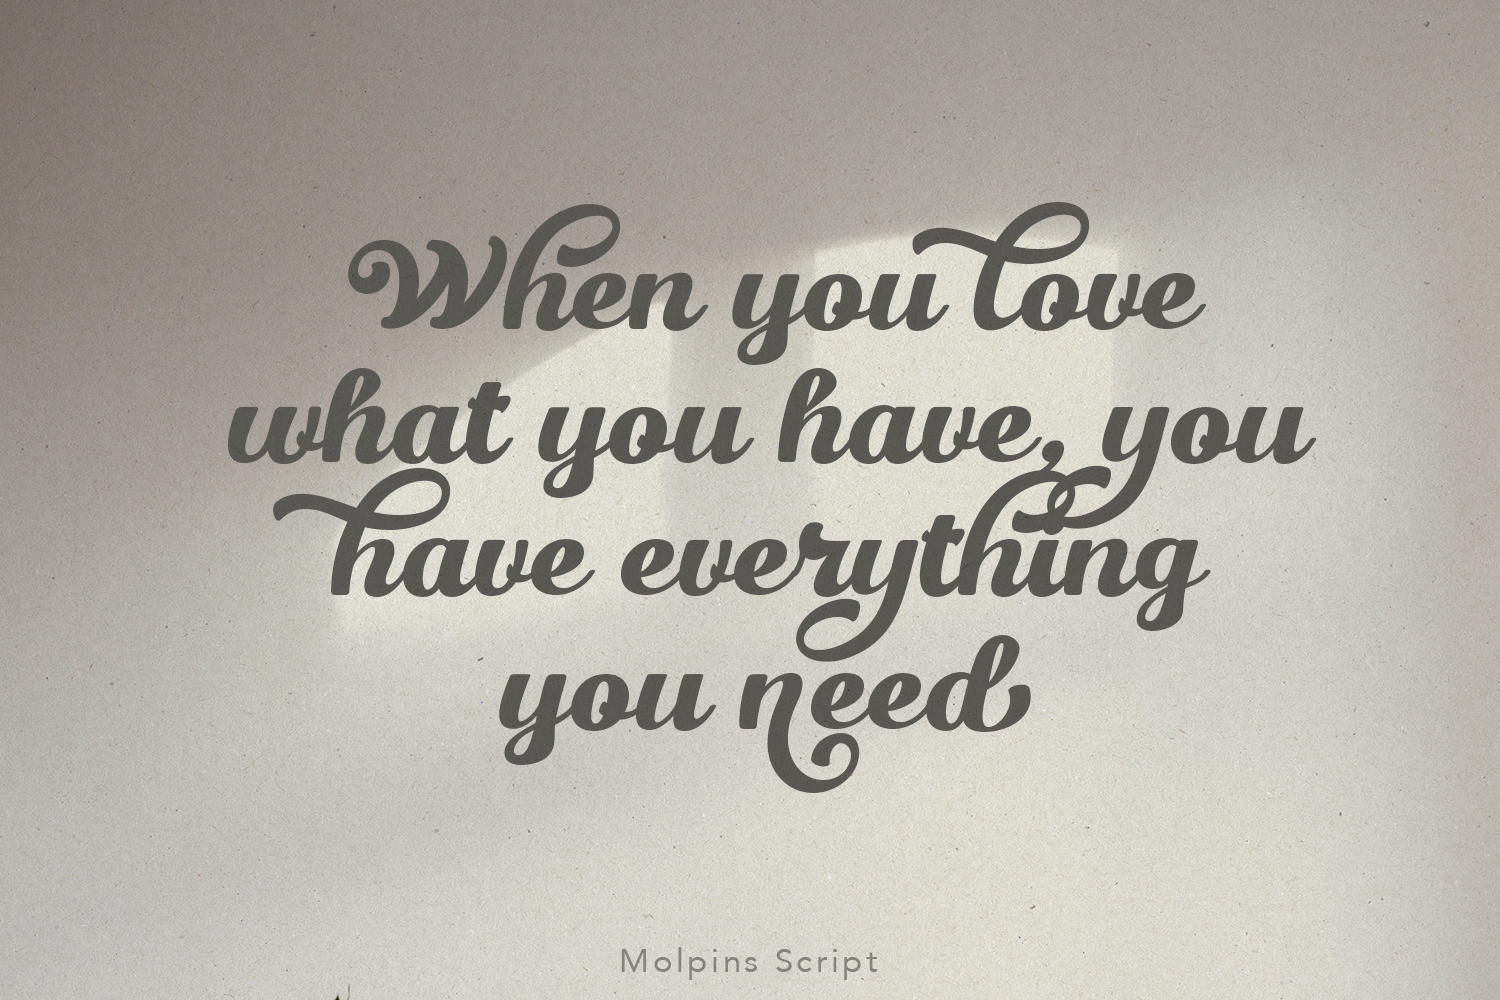 When you love
what you have, you
have everything
you need
Molpins Script